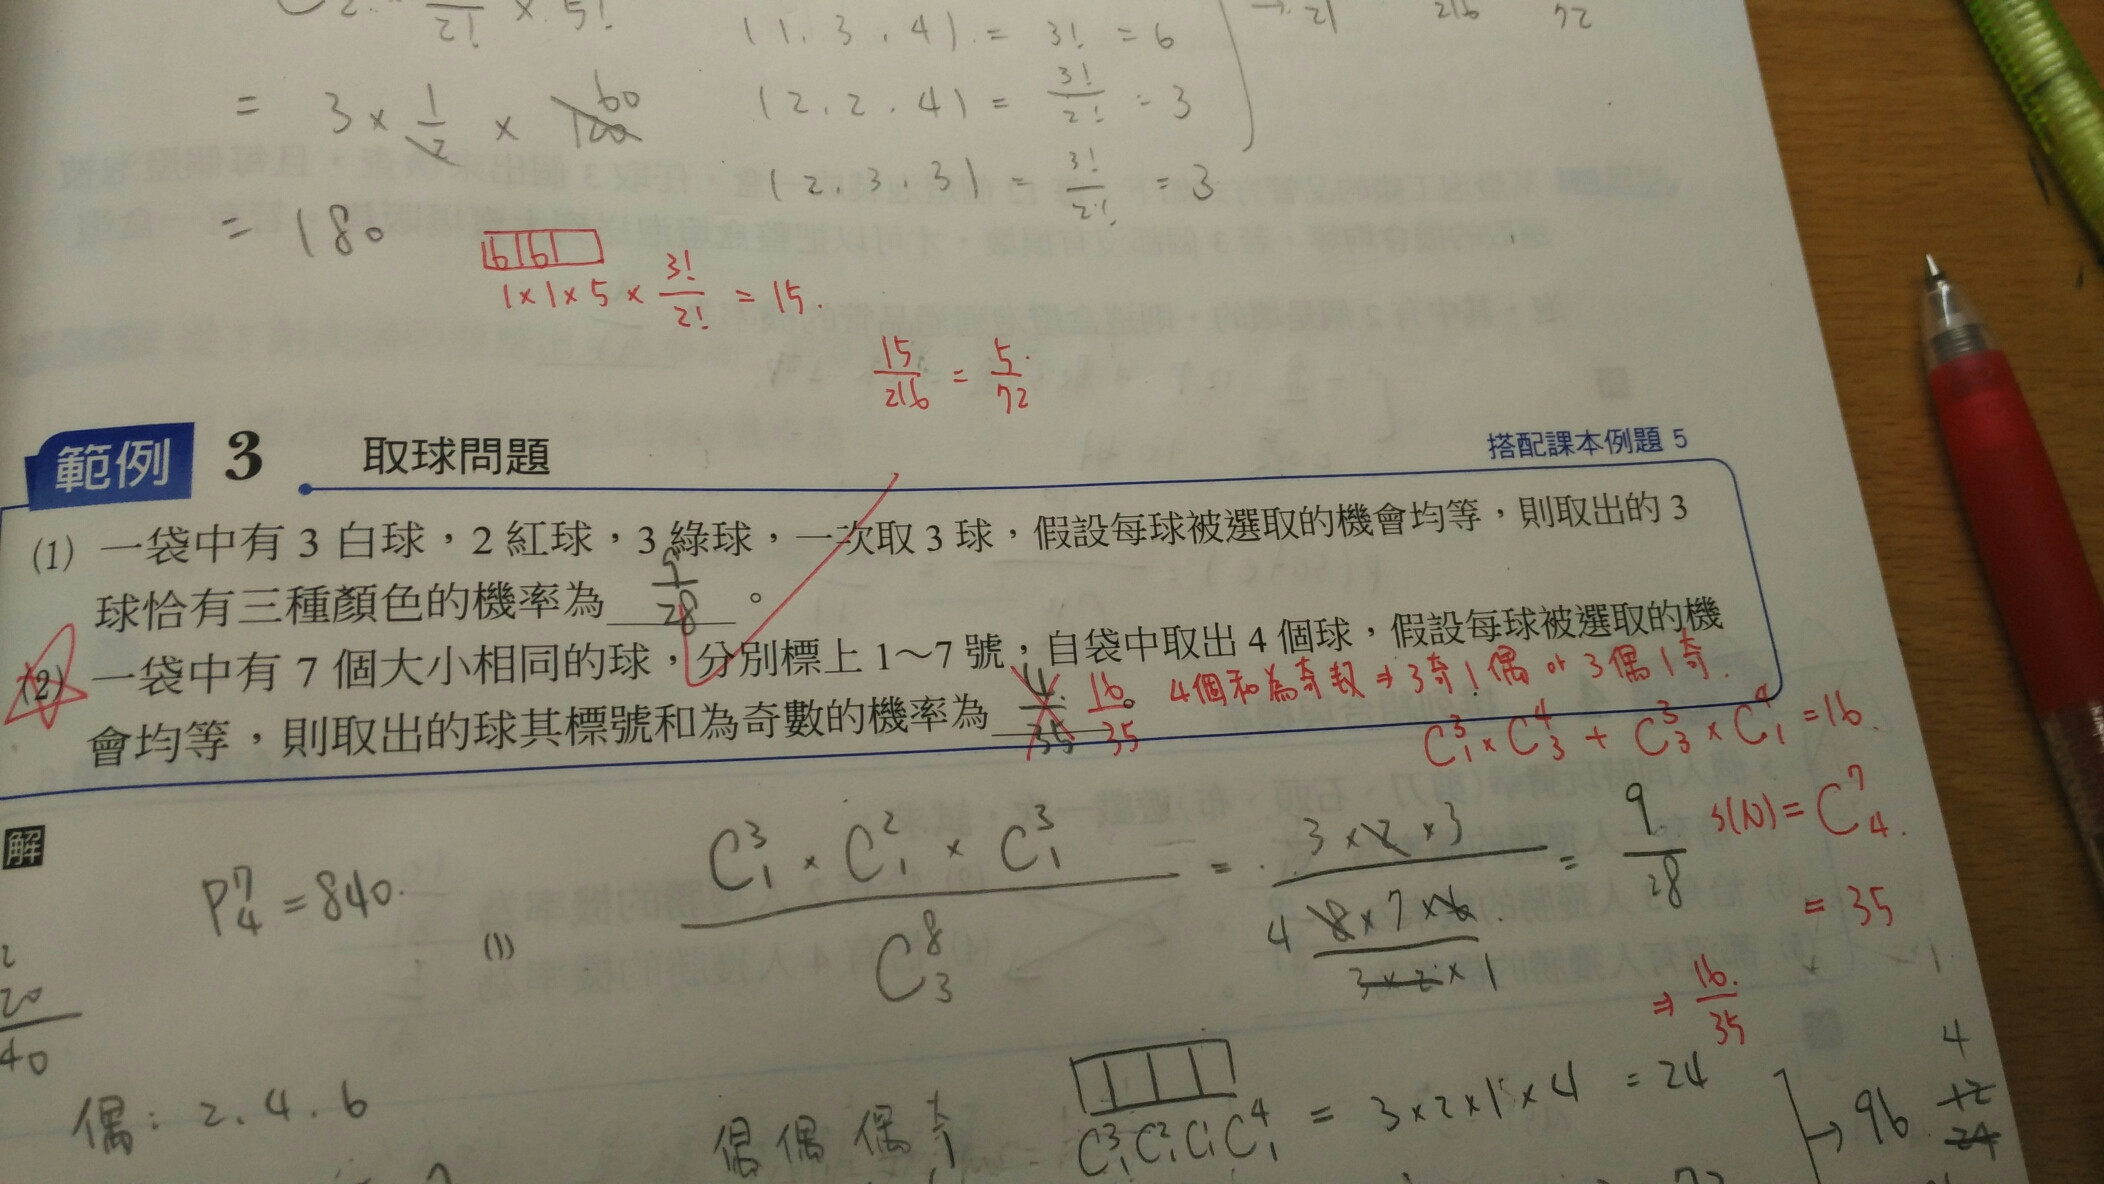 2! × 5!
(1, 3, 4) = 3! = 6
→ 21 216 72
= 3 × 1/2 × 60
(2, 2, 4) = 3!/2! = 3
(2, 3, 3) = 3!/2! = 3
= 180
6 6
1×1×5× 3!/2! = 15.
15/216 = 5/72
範例 3 取球問題 搭配課本例題 5
(1) 一袋中有 3 白球，2 紅球，3 綠球，一次取 3 球，假設每球被選取的機會均等，則取出的 3
球恰有三種顏色的機率為 9/28 。
(2) 一袋中有 7 個大小相同的球，分別標上 1～7 號，自袋中取出 4 個球，假設每球被選取的機
會均等，則取出的球其標號和為奇數的機率為 16/35 。
4個和為奇數 ⇒ 3奇1偶 or 3偶1奇.
C³₁×C⁴₃ + C³₃×C⁴₁ = 16.
S(N) = C⁷₄.
= 35
⇒ 16/35
解
P⁷₄ = 840.
(1) C³₁ × C²₁ × C³₁ / C⁸₃ = 3×2×3 / (4 8×7×6 / 3×2×1) = 9/28
2
20
40
偶: 2.4.6
偶 偶 偶 奇 = C³₁C²₁C¹₁C⁴₁ = 3×2×1×4 = 24
→ 96
4
12
24
72